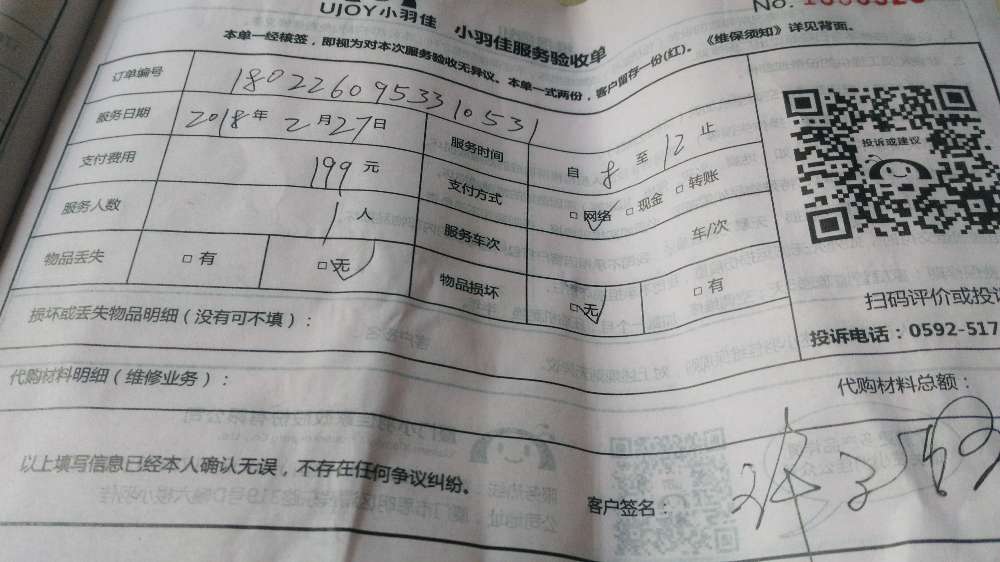 UJOY小羽佳 小羽佳服务验收单
No.
本单一经核签，即视为对本次服务验收无异议。本单一式两份，客户留存一份(红)。《维保须知》详见背面。
订单编号 1802260953310531
服务日期 2018年2月27日 服务时间 自8至12止
支付费用 199元 支付方式 □网络 □现金 □转账
服务人数 1人 服务车次 车/次
物品丢失 □有 □无 物品损坏 □无 □有
投诉或建议
扫码评价或投诉
损坏或丢失物品明细（没有可不填）：
投诉电话：0592-517
代购材料明细（维修业务）：
代购材料总额：
以上填写信息已经本人确认无误，不存在任何争议纠纷。
客户签名：